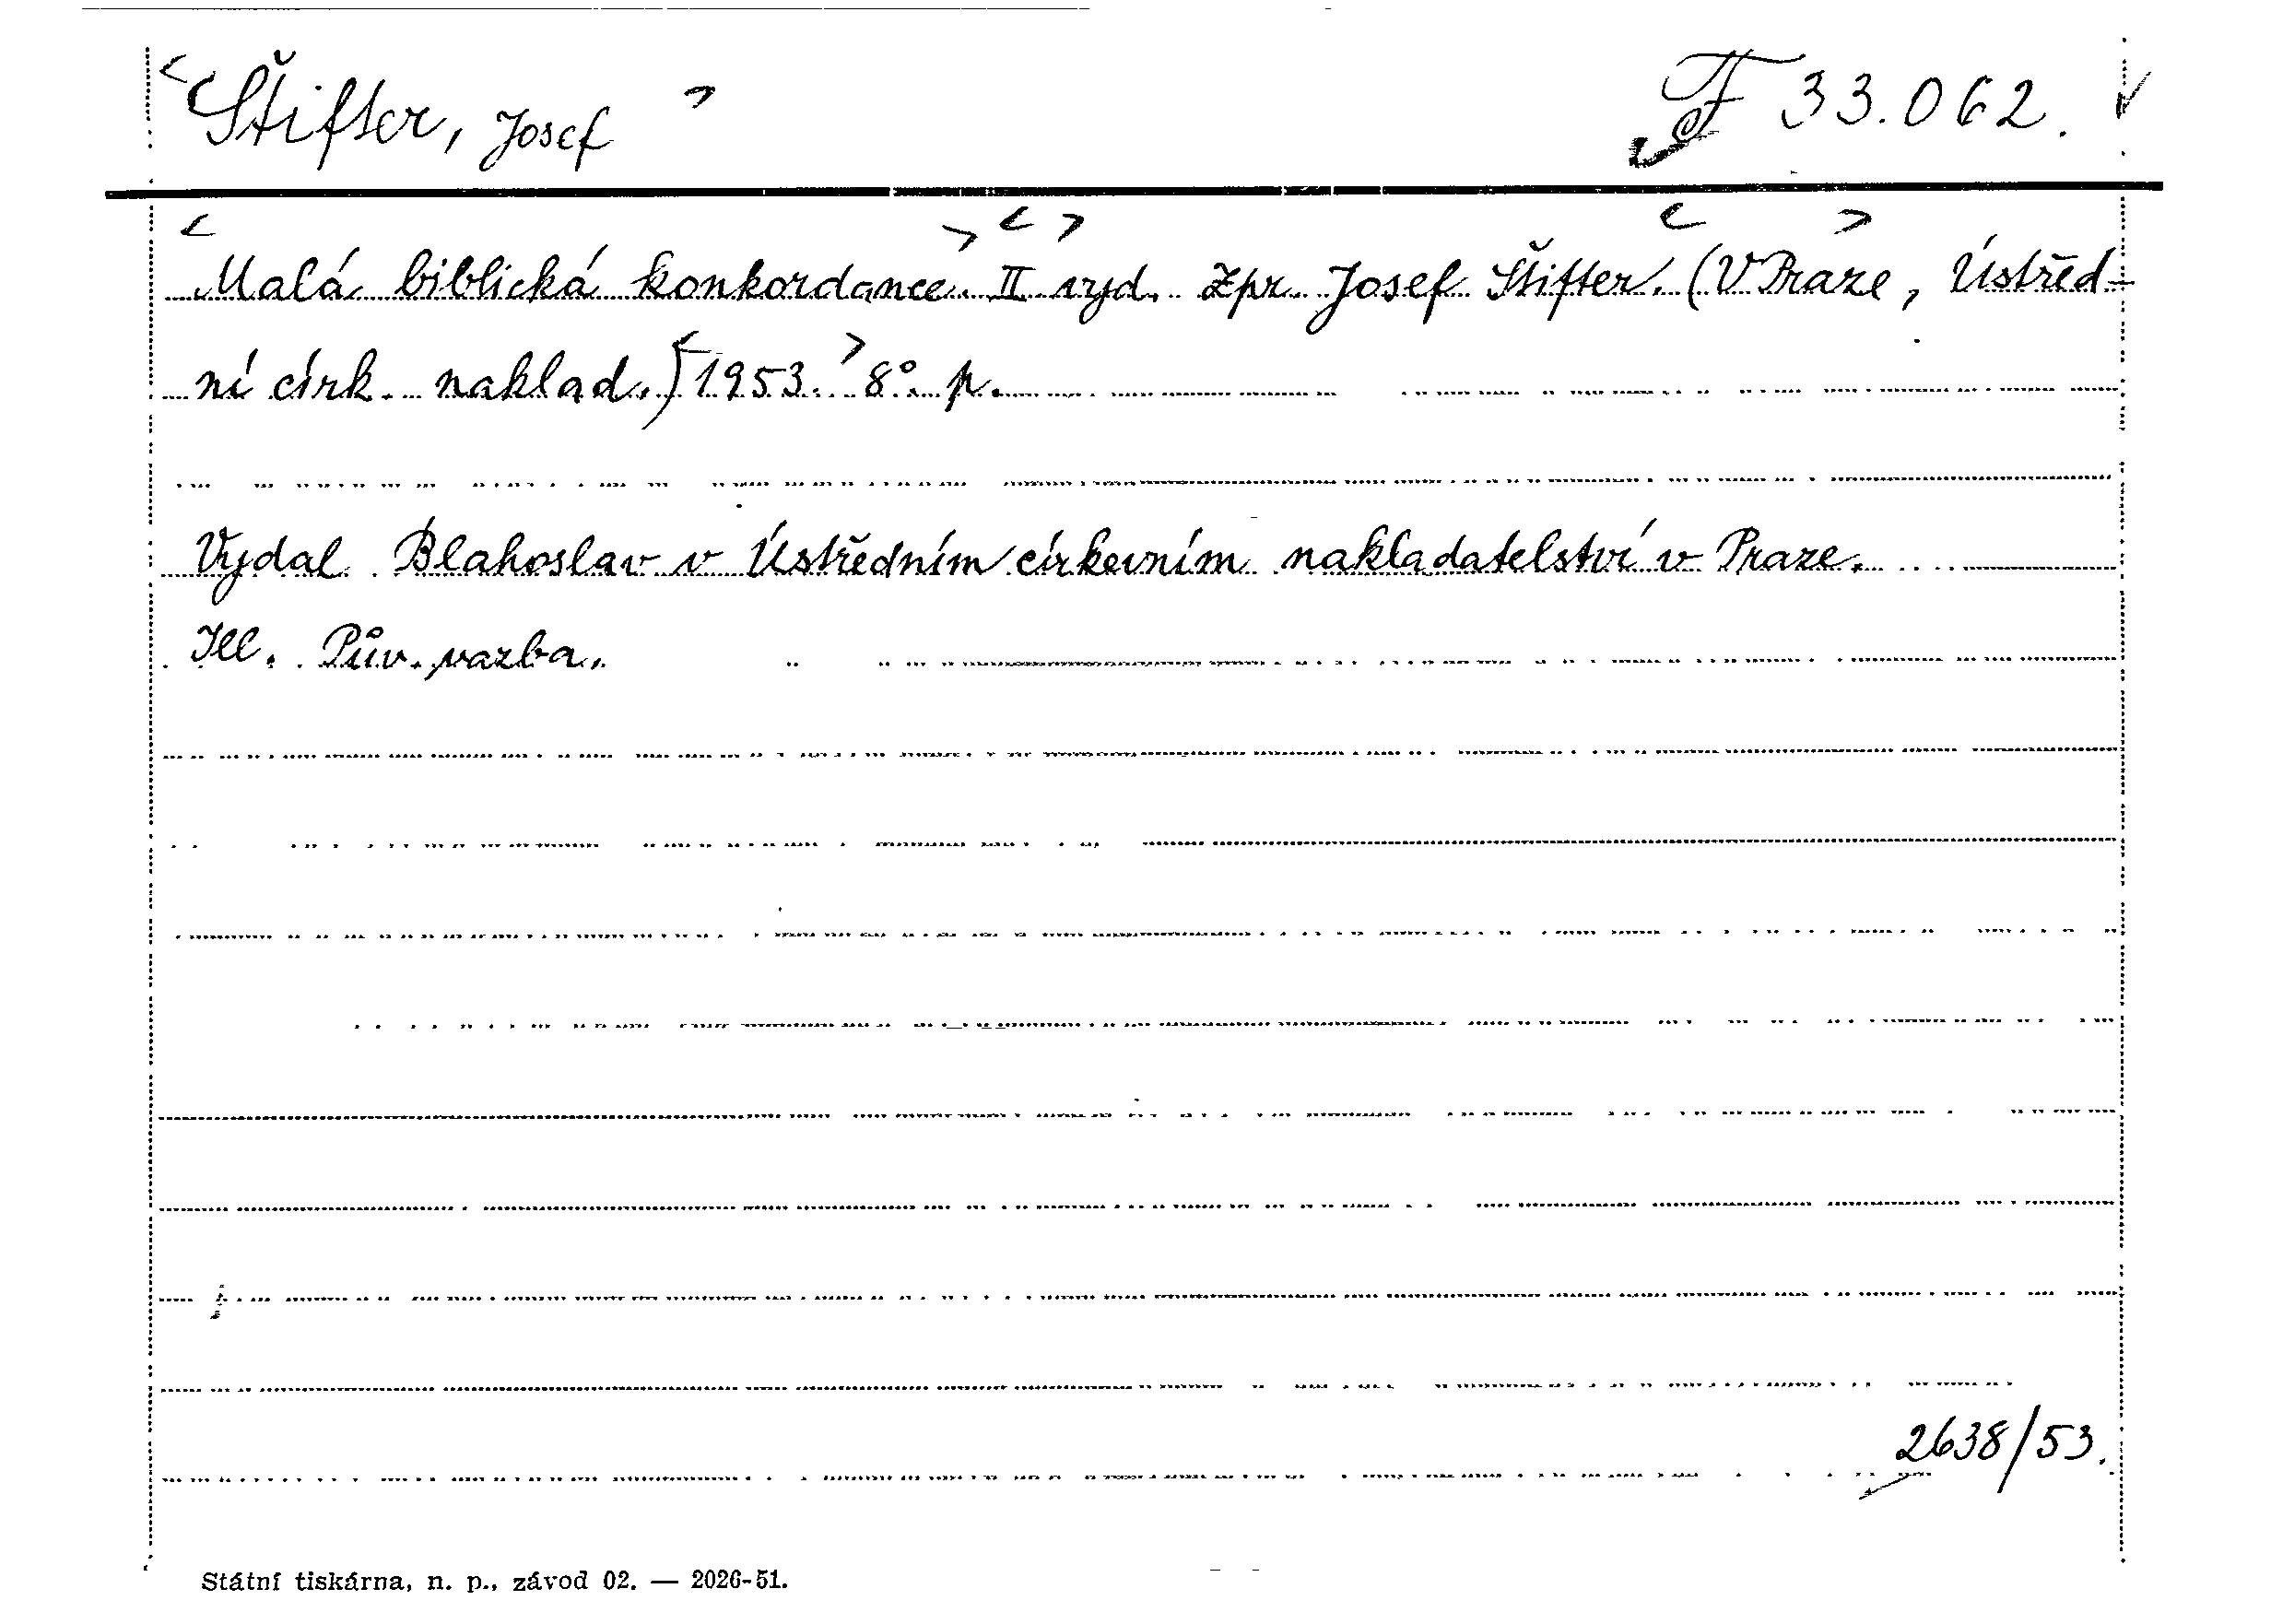 Štifter, Josef F 33.062.
Malá biblická konkordance. II vyd. Zpr. Josef Štifter. (V Praze, Ústřed-
ní círk. naklad.) 1953. 8°. p.
Vydal Blahoslav v Ústředním církevním nakladatelství v Praze.
Ill. Pův. vazba.
2638/53.
Státní tiskárna, n. p., závod 02. — 2026-51.